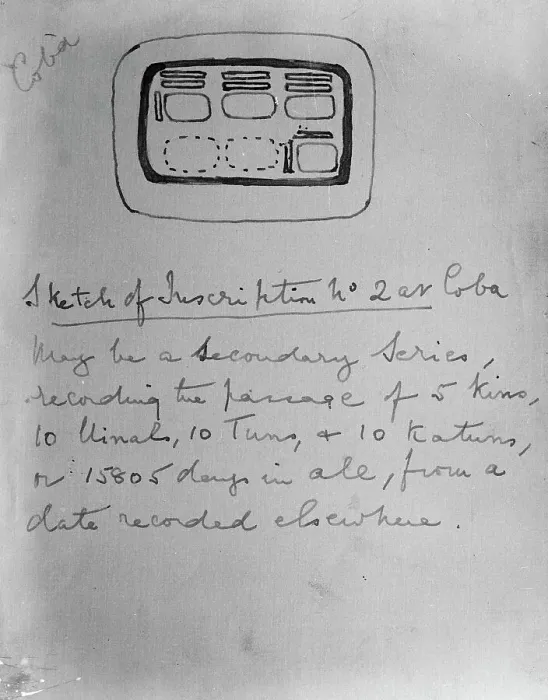 Coba
Sketch of Inscription No 2 at Coba
May be a Secondary Series,
recording the passage of 5 Kins,
10 Uinals, 10 Tuns, + 10 Katuns,
or 15805 days in all, from a
date recorded elsewhere.